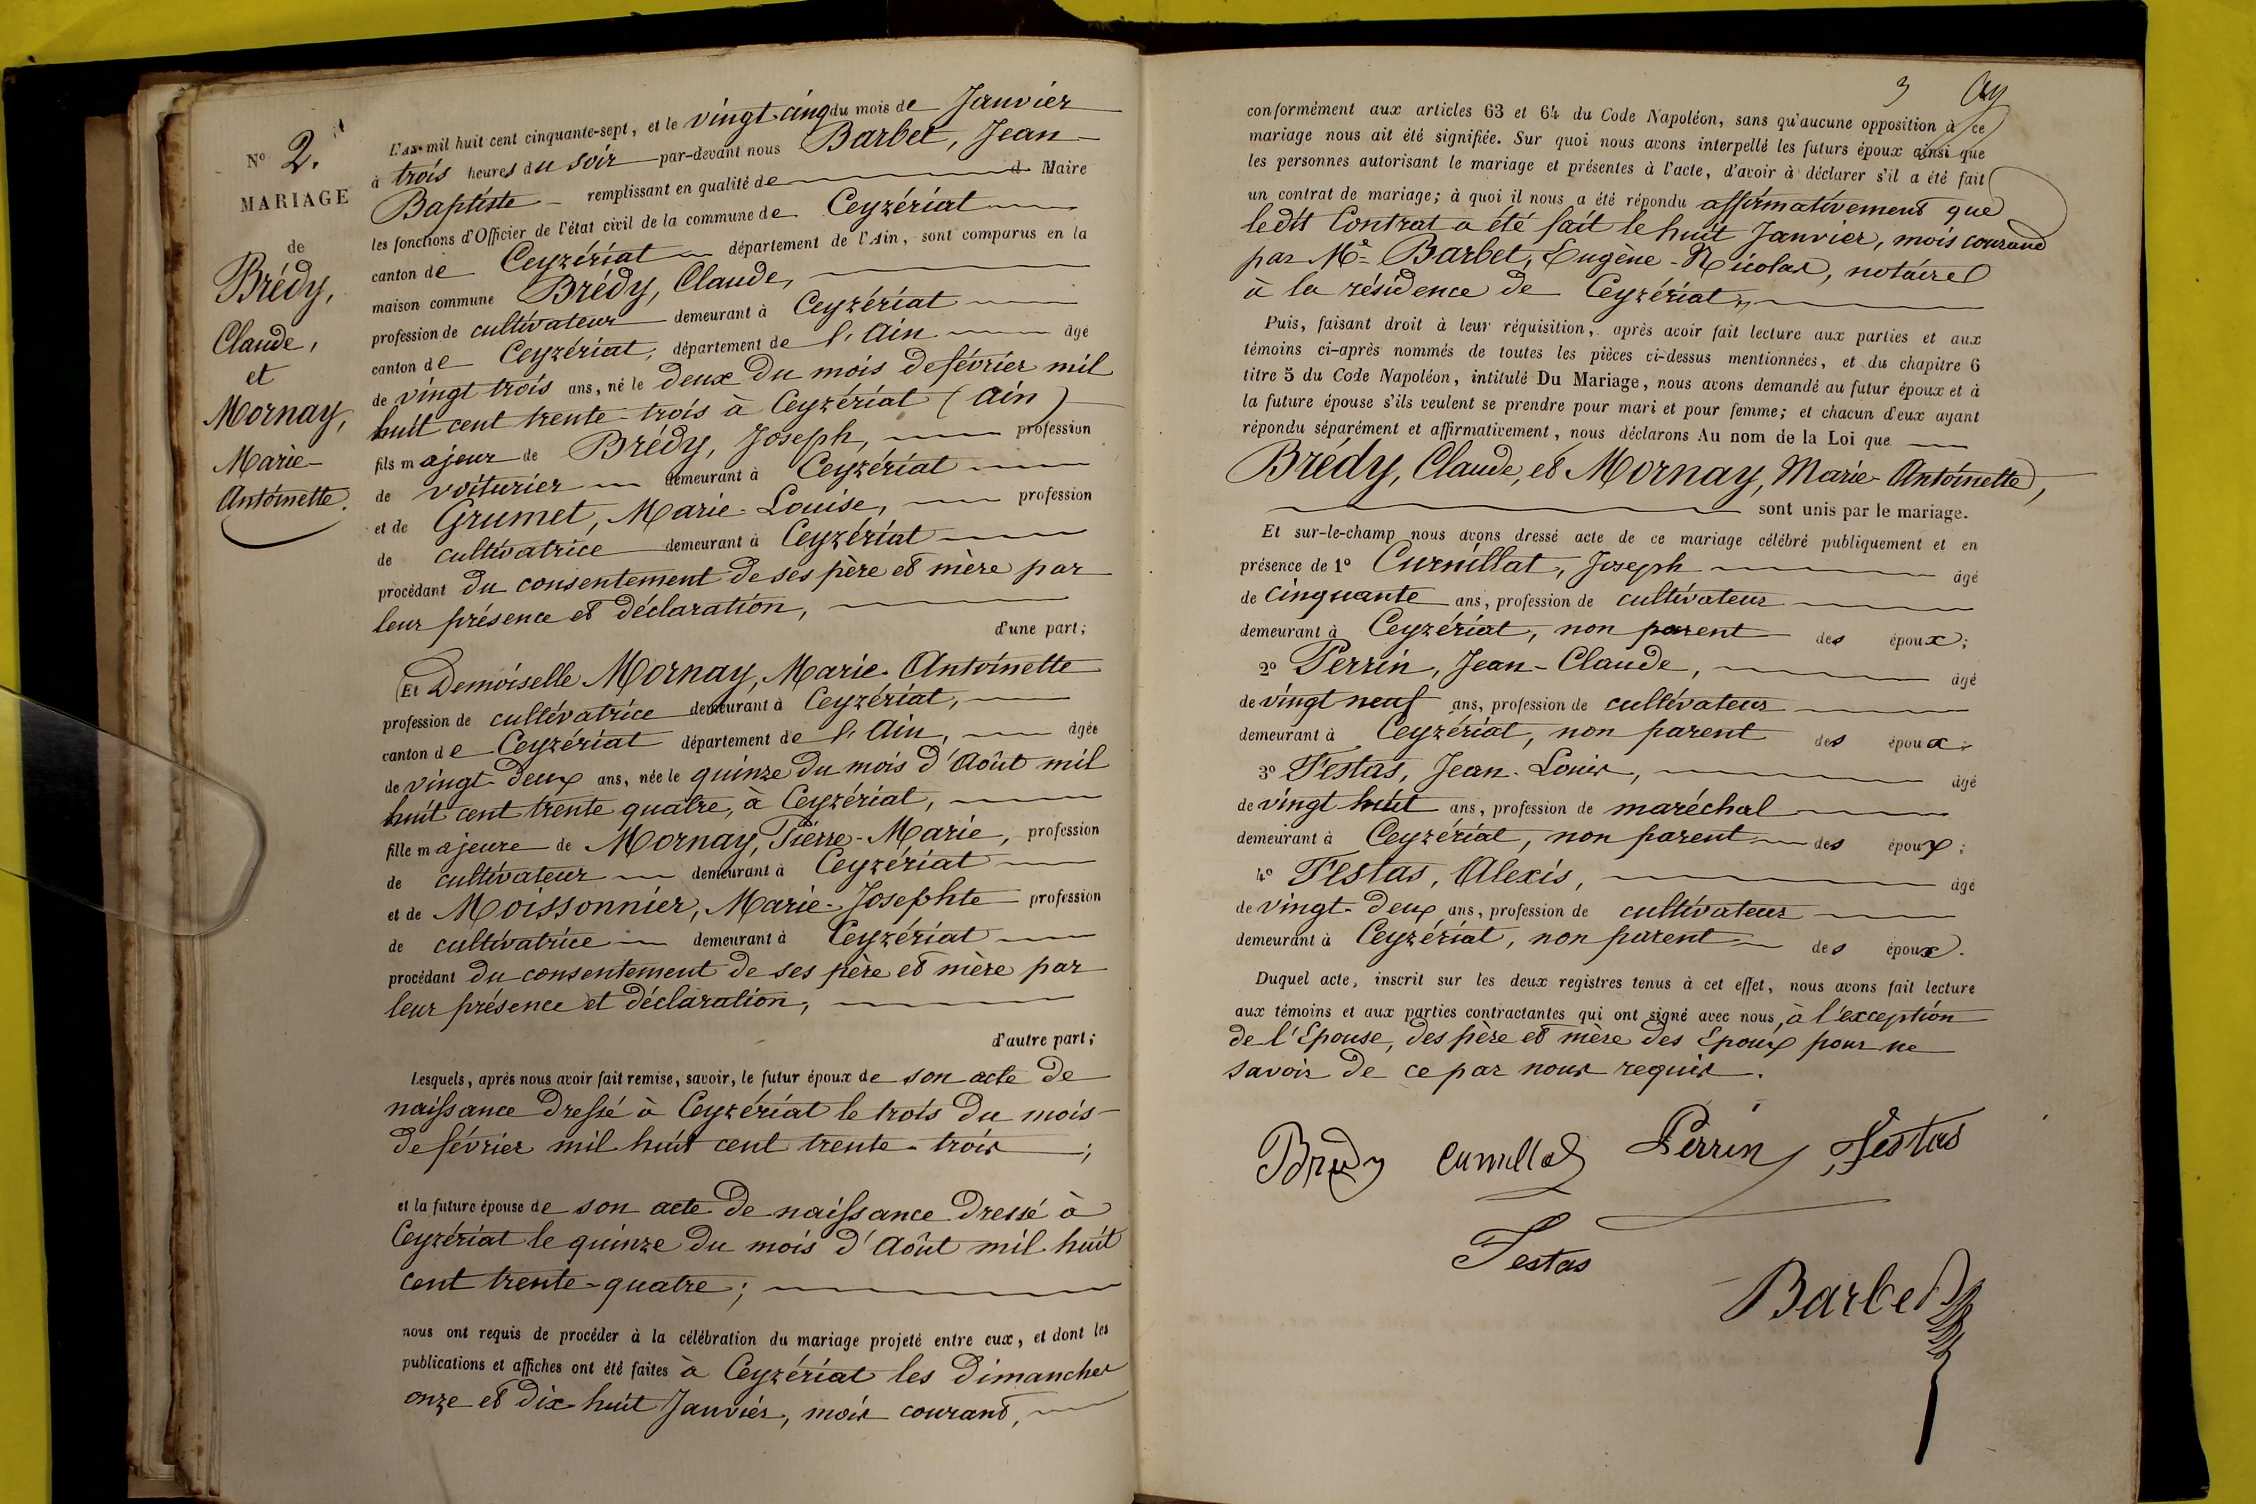 N° 2.
MARIAGE
de
Brédy,
Claude,
et
Mornay,
Marie-
Antoinette.
L'an mil huit cent cinquante-sept, et le vingt cinq du mois de Janvier
à trois heures du soir par-devant nous Barbet, Jean-
Baptiste remplissant en qualité de Maire
les fonctions d'Officier de l'état civil de la commune de Ceyzériat
canton de Ceyzériat département de l'Ain, sont comparus en la
maison commune Brédy, Claude,
profession de cultivateur demeurant à Ceyzériat
canton de Ceyzériat, département de l'Ain âgé
de vingt trois ans, né le deux du mois de février mil
huit cent trente-trois à Ceyzériat (Ain)
fils majeur de Brédy, Joseph, profession
de voiturier demeurant à Ceyzériat
et de Grumet, Marie-Louise, profession
de cultivatrice demeurant à Ceyzériat
procédant du consentement de ses père et mère par
leur présence et déclaration,
d'une part;
Et Demoiselle Mornay, Marie-Antoinette
profession de cultivatrice demeurant à Ceyzériat,
canton de Ceyzériat département de l'Ain, âgée
de vingt-deux ans, née le quinze du mois d'Août mil
huit cent trente quatre, à Ceyzériat,
fille majeure de Mornay, Pierre-Marie, profession
de cultivateur demeurant à Ceyzériat
et de Moissonnier, Marie-Josephte profession
de cultivatrice demeurant à Ceyzériat
procédant du consentement de ses père et mère par
leur présence et déclaration,
d'autre part;
Lesquels, après nous avoir fait remise, savoir, le futur époux de son acte de
naissance dressé à Ceyzériat le trois du mois
de février mil huit cent trente-trois ;
et la future épouse de son acte de naissance dressé à
Ceyzériat le quinze du mois d'Août mil huit
cent trente-quatre;
nous ont requis de procéder à la célébration du mariage projeté entre eux, et dont les
publications et affiches ont été faites à Ceyzériat les dimanches
onze et dix-huit Janvier, mois courant,
3
conformément aux articles 63 et 64 du Code Napoléon, sans qu'aucune opposition à ce
mariage nous ait été signifiée. Sur quoi nous avons interpellé les futurs époux ainsi que
les personnes autorisant le mariage et présentes à l'acte, d'avoir à déclarer s'il a été fait
un contrat de mariage; à quoi il nous a été répondu affirmativement que
ledit Contrat a été fait le huit Janvier, mois courant
par Me Barbet, Eugène-Nicolas, notaire
à la résidence de Ceyzériat,
Puis, faisant droit à leur réquisition, après avoir fait lecture aux parties et aux
témoins ci-après nommés de toutes les pièces ci-dessus mentionnées, et du chapitre 6
titre 5 du Code Napoléon, intitulé Du Mariage, nous avons demandé au futur époux et à
la future épouse s'ils veulent se prendre pour mari et pour femme; et chacun d'eux ayant
répondu séparément et affirmativement, nous déclarons Au nom de la Loi que
Brédy, Claude, et Mornay, Marie-Antoinette,
sont unis par le mariage.
Et sur-le-champ nous avons dressé acte de ce mariage célébré publiquement et en
présence de 1° Curnillat, Joseph âgé
de cinquante ans, profession de cultivateur
demeurant à Ceyzériat, non parent des époux;
2° Perrin, Jean-Claude, âgé
de vingt neuf ans, profession de cultivateur
demeurant à Ceyzériat, non parent des époux;
3° Festas, Jean-Louis, âgé
de vingt huit ans, profession de maréchal
demeurant à Ceyzériat, non parent des époux;
4° Festas, Alexis, âgé
de vingt-deux ans, profession de cultivateur
demeurant à Ceyzériat, non parent des époux.
Duquel acte, inscrit sur les deux registres tenus à cet effet, nous avons fait lecture
aux témoins et aux parties contractantes qui ont signé avec nous, à l'exception
de l'Epouse, des père et mère des Epoux pour ne
savoir de ce par nous requis.
Brédy Curnillat Perrin Festas
Festas
Barbet